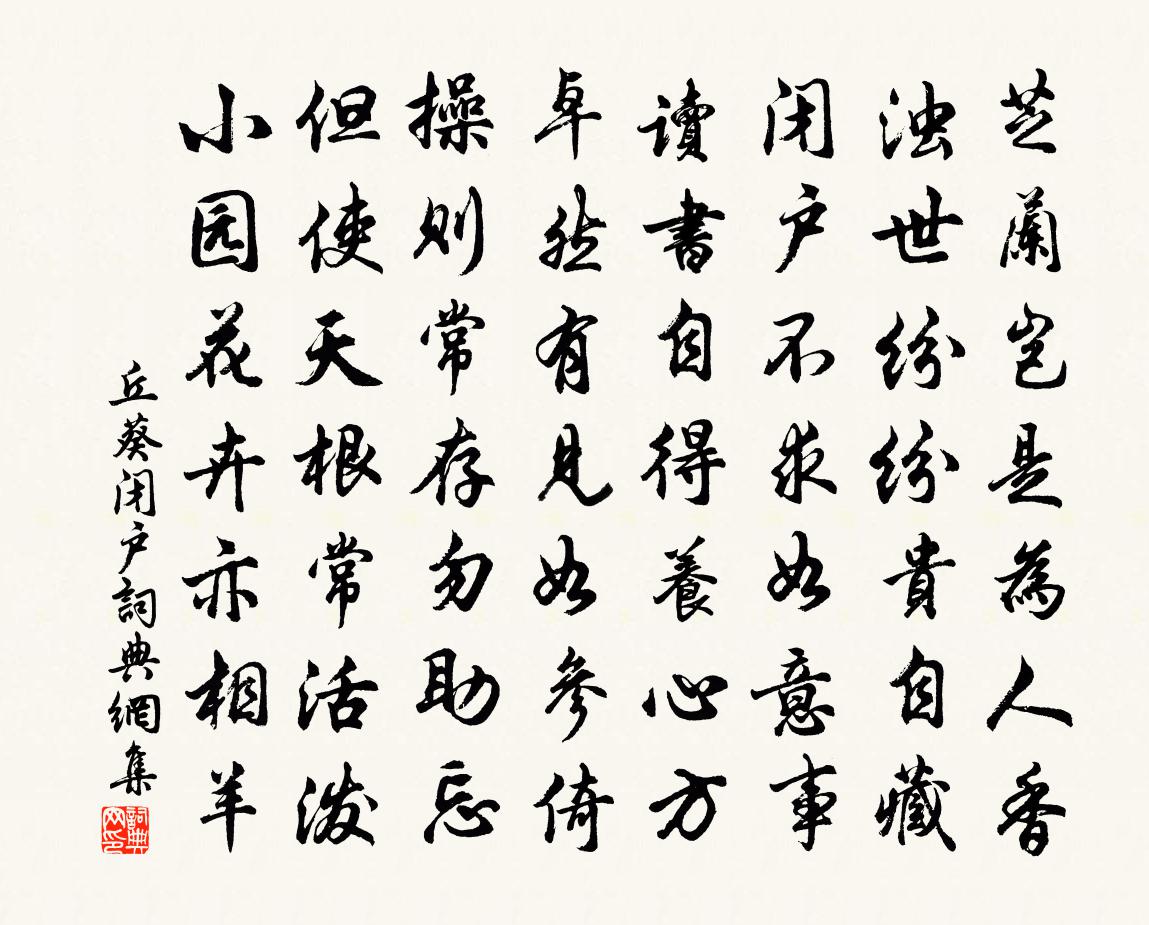 芝蘭岂是為人香
浊世纷纷貴自藏
闭户不求如意事
讀書自得養心方
卓然有見如參倚
操则常存勿助忘
但使天根常活泼
小园花卉亦相羊
丘葵闭户詞典網集
詞典网印